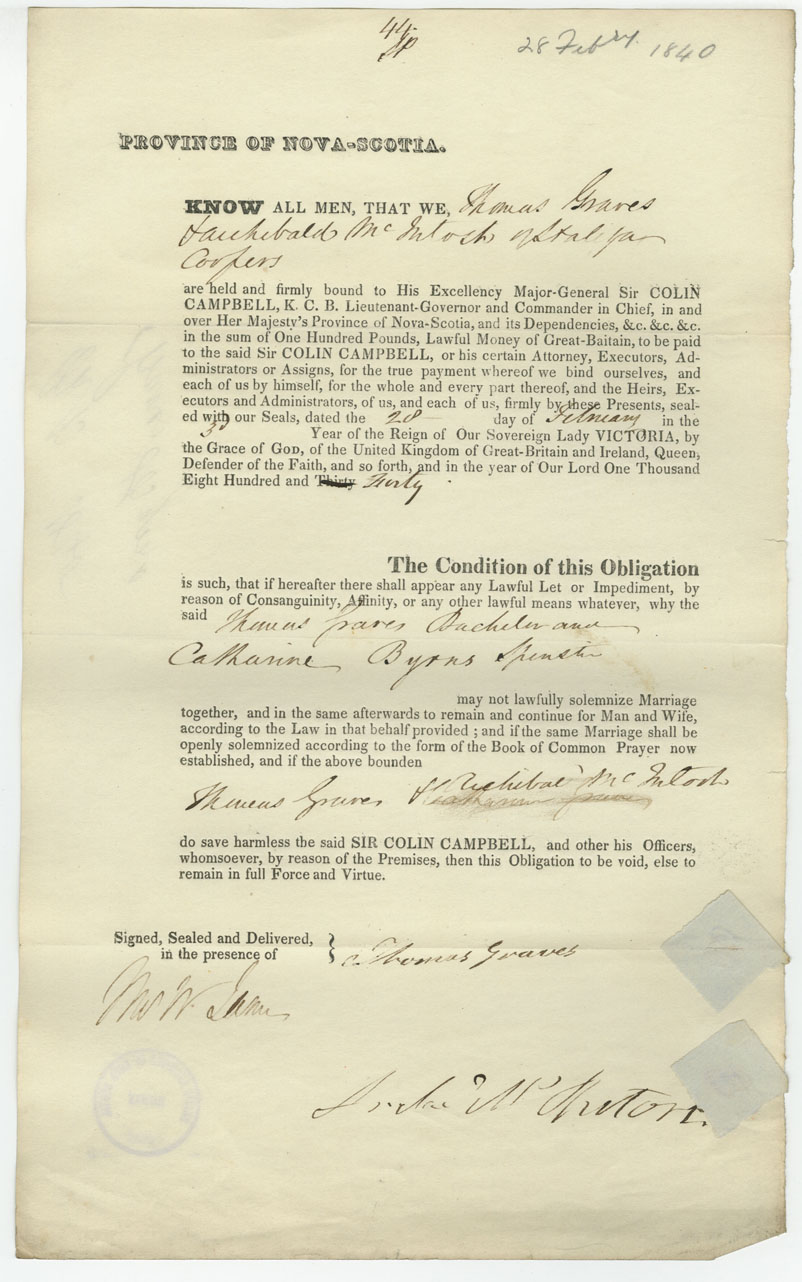 44
28 Feby 1840
PROVINCE OF NOVA-SCOTIA.
KNOW ALL MEN, THAT WE, Thomas Graves
& Archibald Mc Intosh of Halifax
Coopers
are held and firmly bound to His Excellency Major-General Sir COLIN
CAMPBELL, K. C. B. Lieutenant-Governor and Commander in Chief, in and
over Her Majesty's Province of Nova-Scotia, and its Dependencies, &c. &c. &c.
in the sum of One Hundred Pounds, Lawful Money of Great-Baitain, to be paid
to the said Sir COLIN CAMPBELL, or his certain Attorney, Executors, Ad-
ministrators or Assigns, for the true payment whereof we bind ourselves, and
each of us by himself, for the whole and every part thereof, and the Heirs, Ex-
ecutors and Administrators, of us, and each of us, firmly by these Presents, seal-
ed with our Seals, dated the 28 day of February in the
3d Year of the Reign of Our Sovereign Lady VICTORIA, by
the Grace of God, of the United Kingdom of Great-Britain and Ireland, Queen,
Defender of the Faith, and so forth, and in the year of Our Lord One Thousand
Eight Hundred and Thirty Forty
The Condition of this Obligation
is such, that if hereafter there shall appear any Lawful Let or Impediment, by
reason of Consanguinity, Affinity, or any other lawful means whatever, why the
said Thomas Graves Bachelor and
Catharine Byrns Spinster
may not lawfully solemnize Marriage
together, and in the same afterwards to remain and continue for Man and Wife,
according to the Law in that behalf provided ; and if the same Marriage shall be
openly solemnized according to the form of the Book of Common Prayer now
established, and if the above bounden
Thomas Graves & Archibald Mc Intosh
do save harmless the said SIR COLIN CAMPBELL, and other his Officers,
whomsoever, by reason of the Premises, then this Obligation to be void, else to
remain in full Force and Virtue.
Signed, Sealed and Delivered,
in the presence of
Thomas Graves
W. James